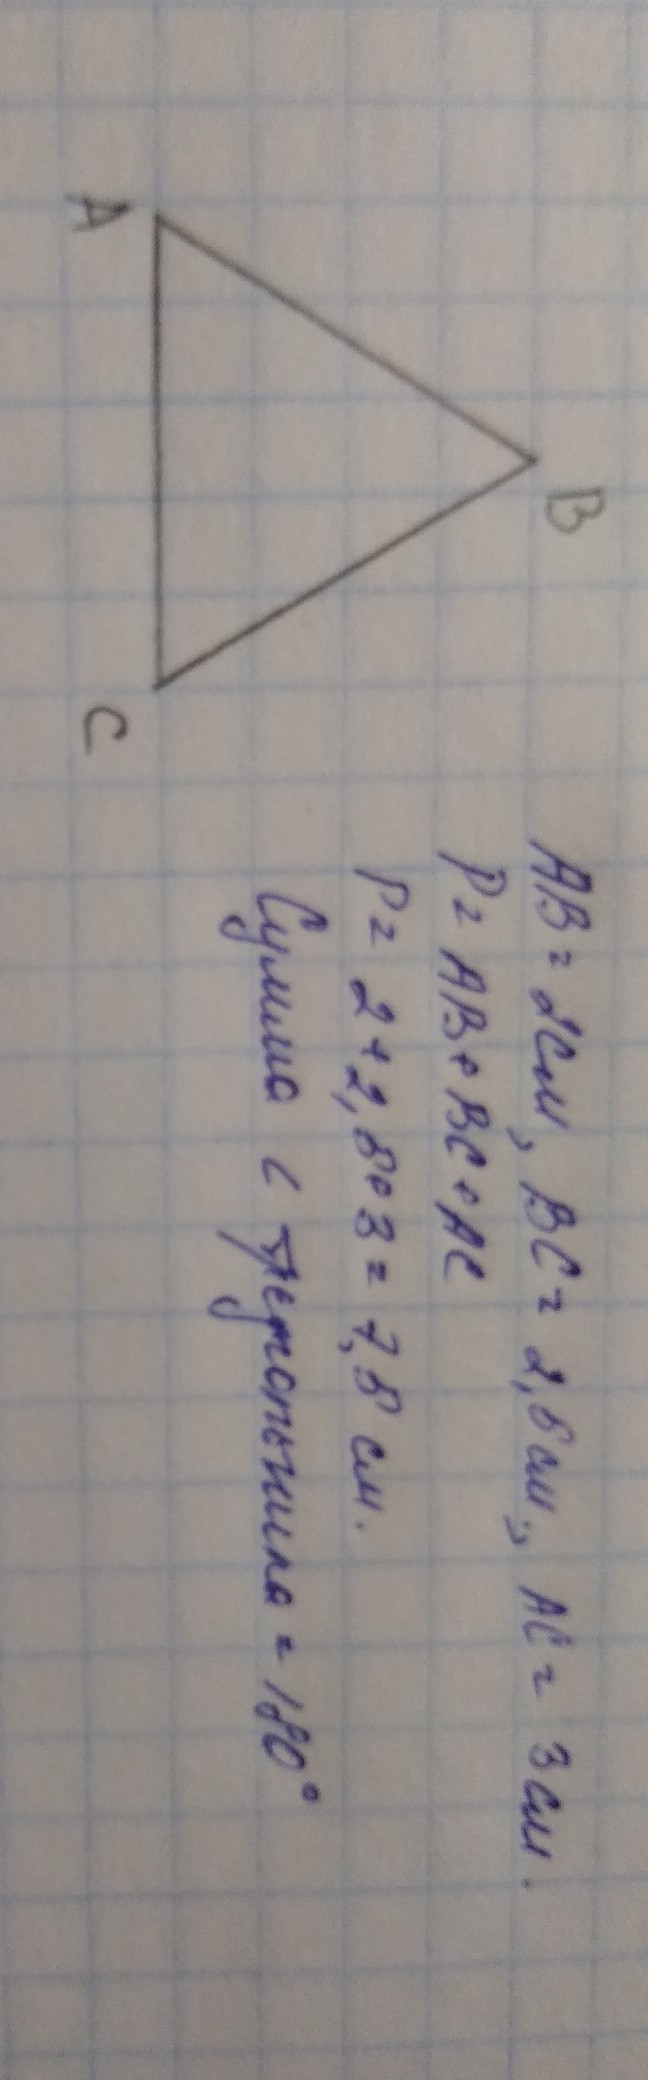 B
A
C
AB = 2см, BC = 2,8 см., AC = 3 см.
P = AB + BC + AC
P = 2 + 2,8 + 3 = 7,8 см.
Сумма < треугольника = 180°